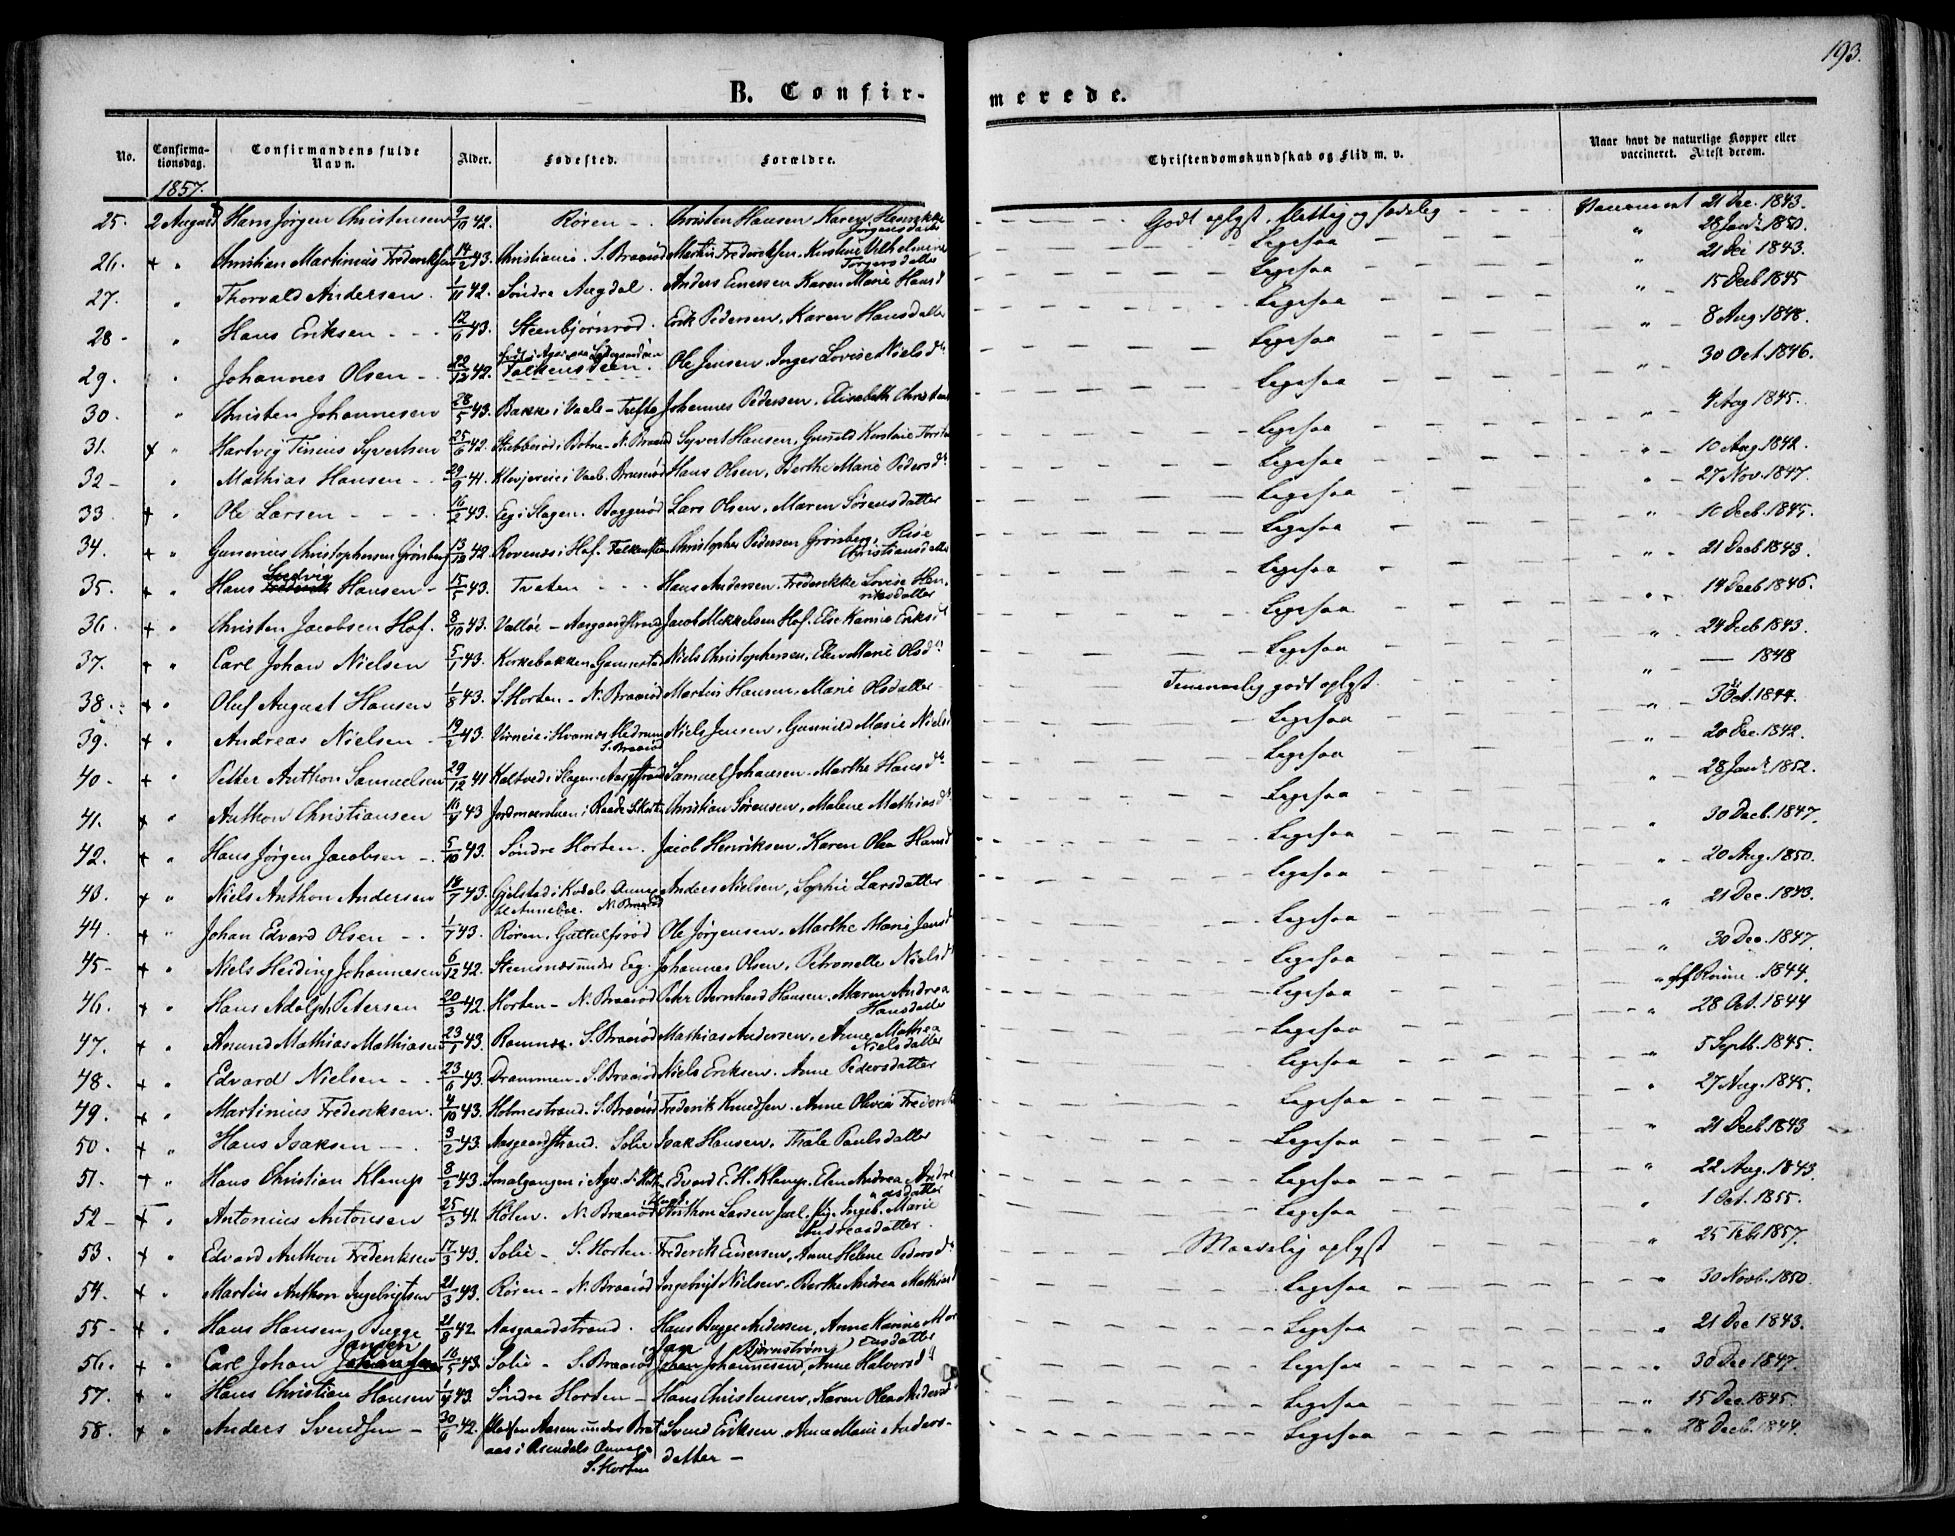 193.
B. Confirmerede.
No. Confirmationsdag. Confirmandens fulde Navn. Alder. Fødested. Forældre. Christendomskundskab og Flid m. v. Naar havt de naturlige Kopper eller vaccineret. Attest derom.
1857.
25. 2 August Hans Jørgen Christensen 9/10 42. Røren - Christen Hansen Karen Jørgensdatter Godt oplyst. flittig og sædelig Vaccineret 21 Dec. 1843.
26. + " Christian Martinius Frederiksen 14/2 43. Christiania. S. Braarød Martin Frederiksen. Kirstine Vilhelmine Torgersdatter Ligesaa " 28 Jan. 1850.
27. " Thorvald Andersen. 1/11 42. Søndre Augdal. Anders Einersen Karen Marie Hansd Ligesaa " 21 Dec 1843.
28 " Hans Eriksen - 12/6 43. Steenbjørnrød. Erik Pedersen, Karen Hansdatter Ligesaa " 15 Decb 1845
29. " Johannes Olsen - 22/12 42. Falkensteen. Ole Jensen. Inger Lovise Nielsd Ligesaa " 8 Aug. 1848.
30. " Christen Johannesen 28/5 43. Bakke i Vaale - Tufte Johannes Pedersen. Elisabeth Christens Ligesaa " 30 Oct. 1846.
31. + " Hartvig Tinius Syvertsen 25/6 42. i Botne - N. Braarød Syvert Hansen, Gunild Kirstine Ligesaa " 4 Aug 1845.
32 - " Mathias Hansen 29/9 41. i Vaale. Hans Olsen, Berthe Marie Pedersd Ligesaa " 10 Aug. 1842.
33. + " Ole Larsen 16/2 43. Eeg i Slagen. Baggerød Lars Olsen, Maren Sørensdatter Ligesaa " 27 Nov. 1847.
34. + " Gunerius Christophersen Grønberg 13/12 42 Rovenæs i Hof. Falkensten Christopher Pedersen Grønberg, Elise Christiansdatter Ligesaa " 10 Decb. 1845.
35. + " Hans Ludvig Hansen - 15/5 43. Tveten Hans Andersen. Frederikke Lovise Henriksdatter Ligesaa " 21 Decb 1843.
36. + " Christen Jacobsen Hof. 8/10 43. Valløe - Aasgaardstrand Jacob Mikkelsen Hof. Else Karine Eriksd Ligesaa " 14 Decb 1846.
37. + " Carl Johan Nielsen 5/1 43. Korkebakken, Gannestad Niels Christophersen, Elen Marie Olsd Ligesaa " 24 Decb 1843.
38. + " Oluf August Hansen 1/8 43. S. Horten - N. Braarød Martin Hansen, Marie Olsdatter Temmelig godt oplyst. " — 1848
39. + " Andreas Nielsen 19/2 43. Hedrum S. Braarød Niels Jensen, Gunnild Marie Niels Ligesaa " 3 Oct. 1844.
40 - + " Petter Anthon Samuelsen 29/12 41 Holtved i Slagen. Aasgstrand Samuel Johansen. Marthe Hansd Ligesaa " 20 Dec. 1842.
41. + " Anthon Christiansen 16/9 43 i Raade S. Horten Christian Sørensen, Malene Mathiasd Ligesaa " 28 Jan. 1852.
42. + " Hans Jørgen Jacobsen - 5/10 43. Søndre Horten. Jacob Henriksen, Karen Olea Hansd Ligesaa " 30 Decb. 1847.
43. + " Niels Anthon Andersen 18/7 43. Gjelstad i Kodals Annex N. Braarød Anders Nielsen, Sophie Larsdatter Ligesaa " 20 Aug. 1850.
44. + " Johan Edvard Olsen - 1/7 43. Røren. Gattulfsrød Ole Jørgensen, Marthe Marie Jensd Ligesaa " 21 Dec. 1843.
45 - + " Niels Heiding Johannesen 6/12 42. Steensnes under Eeg. Johannes Olsen, Petronelle Nielsd Ligesaa " 30 Dec. 1847.
46. + " Hans Adolph Petersen 20/3 42. Horten - N. Braarød Pehr Bernhard Hansen. Maren Andrea Hansdatter Ligesaa 1844.
47. + " Amund Mathias Mathiasen 23/1 43. Ramnes. S. Braarød Mathias Andersen, Anne Mathea Nielsdatter Ligesaa " 28 Oct. 1844
48. + " Edvard Nielsen 23/6 43. Drammen - S. Braarød Niels Eriksen. Anne Pedersdatter Ligesaa " 5 Septb. 1845.
49. + " Martinius Frederiksen. 4/10 43. Holmestrand. S. Braarød Frederik Knudsen. Anne Olivia Frederik Ligesaa " 27 Aug. 1845.
50. + " Hans Isaksen 3/2 43. Aasgaardstrand. Solie Isak Hansen, Thale Paulsdatter Ligesaa " 21 Decb 1843
51. + " Hans Christian Klemp 8/2 43. Smalgangen i Edvard E. H. Klemp. Elen Andrea Andreasdatter Ligesaa " 22 Aug. 1843.
52 - + " Antonius Antonsen 25/3 41. Hølen. N. Braarød Anthon Larsen Ingeb. Marie Andreasdatter. Ligesaa " 1 Oct. 1855.
53. + " Edvard Anthon Frederiksen 17/3 43. Solie - S. Horten. Frederik Einersen, Anne Helene Pedersd Maadelig oplyst " 25 Feb 1857.
54. + " Martin Anthon Ingebrigtsen 21/3 43. Røren - N. Braarød Ingebrigt Nielsen. Berthe Andrea Mathiasd Ligesaa " 30 Novb. 1850.
55 - + " Hans Hansen Bugge 21/8 42 Aasgaardstrand. Hans Bugge Andersen, Anne Karine Mortensdatter Ligesaa " 21 Dec 1843.
56. + " Carl Johan Jansen 16/5 43. Solie - S. Braarød Jan Johannesen (Bjørnstrøm), Anne Halvorsd Ligesaa " 30 Dec 1847.
57. + " Hans Christian Hansen 1/9 43. Søndre Horten - Hans Christensen, Karen Olea Andersd Ligesaa " 15 Dec. 1845.
58. + " Anders Svendsen - 30/6 42. Pladsen Aasen under i Annex S. Horten Svend Eriksen. Anne Marie Andersdatter - Ligesaa " 28 Decb. 1844.